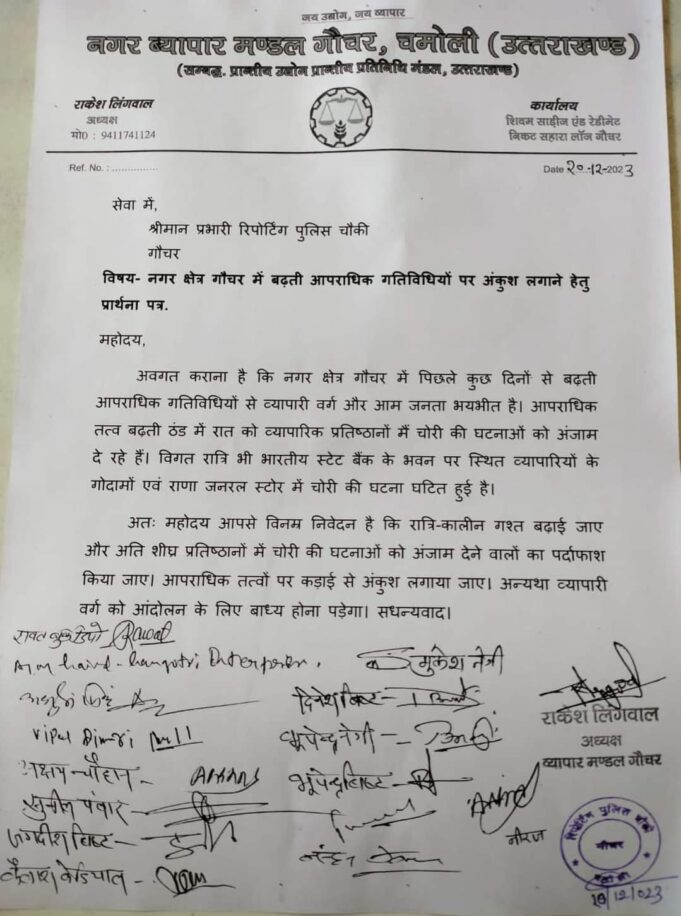 जय उद्योग, जय व्यापार
नगर ब्यापार मण्डल गौचर, चमोली (उत्तराखण्ड)
(सम्बद्ध. प्रान्तीय उद्योग प्रान्तीय प्रतिनिधि मंडल, उत्तराखण्ड)
राकेश लिंगवाल
अध्यक्ष
मो0 : 9411741124
कार्यालय
शिवम साड़ीज एंड रेडीमेट
निकट सहारा लॉज गौचर
Ref. No. : ..............
Date 20-12-2023
सेवा में,
श्रीमान प्रभारी रिपोर्टिंग पुलिस चौकी
गौचर
विषय- नगर क्षेत्र गौचर में बढ़ती आपराधिक गतिविधियों पर अंकुश लगाने हेतु
प्रार्थना पत्र.
महोदय,
अवगत कराना है कि नगर क्षेत्र गौचर में पिछले कुछ दिनों से बढ़ती
आपराधिक गतिविधियों से व्यापारी वर्ग और आम जनता भयभीत है। आपराधिक
तत्व बढ़ती ठंड में रात को व्यापारिक प्रतिष्ठानों में चोरी की घटनाओं को अंजाम
दे रहे हैं। विगत रात्रि भी भारतीय स्टेट बैंक के भवन पर स्थित व्यापारियों के
गोदामों एवं राणा जनरल स्टोर में चोरी की घटना घटित हुई है।
अतः महोदय आपसे विनम्र निवेदन है कि रात्रि-कालीन गश्त बढ़ाई जाए
और अति शीघ्र प्रतिष्ठानों में चोरी की घटनाओं को अंजाम देने वालों का पर्दाफाश
किया जाए। आपराधिक तत्वों पर कड़ाई से अंकुश लगाया जाए। अन्यथा व्यापारी
वर्ग को आंदोलन के लिए बाध्य होना पड़ेगा। सधन्यवाद।
रावत बुक डिपो Rawat
मुकेश नेगी
दिनेश बिष्ट -
Vipul Dimri
भूपेन्द्र नेगी -
अक्षय चौहान -
भूपेन्द्र बिष्ट -
सुनील पंवार
जगदीश बिष्ट -
नीरज
राकेश लिंगवाल
अध्यक्ष
व्यापार मण्डल गौचर
रिपोर्टिंग पुलिस चौकी
गौचर